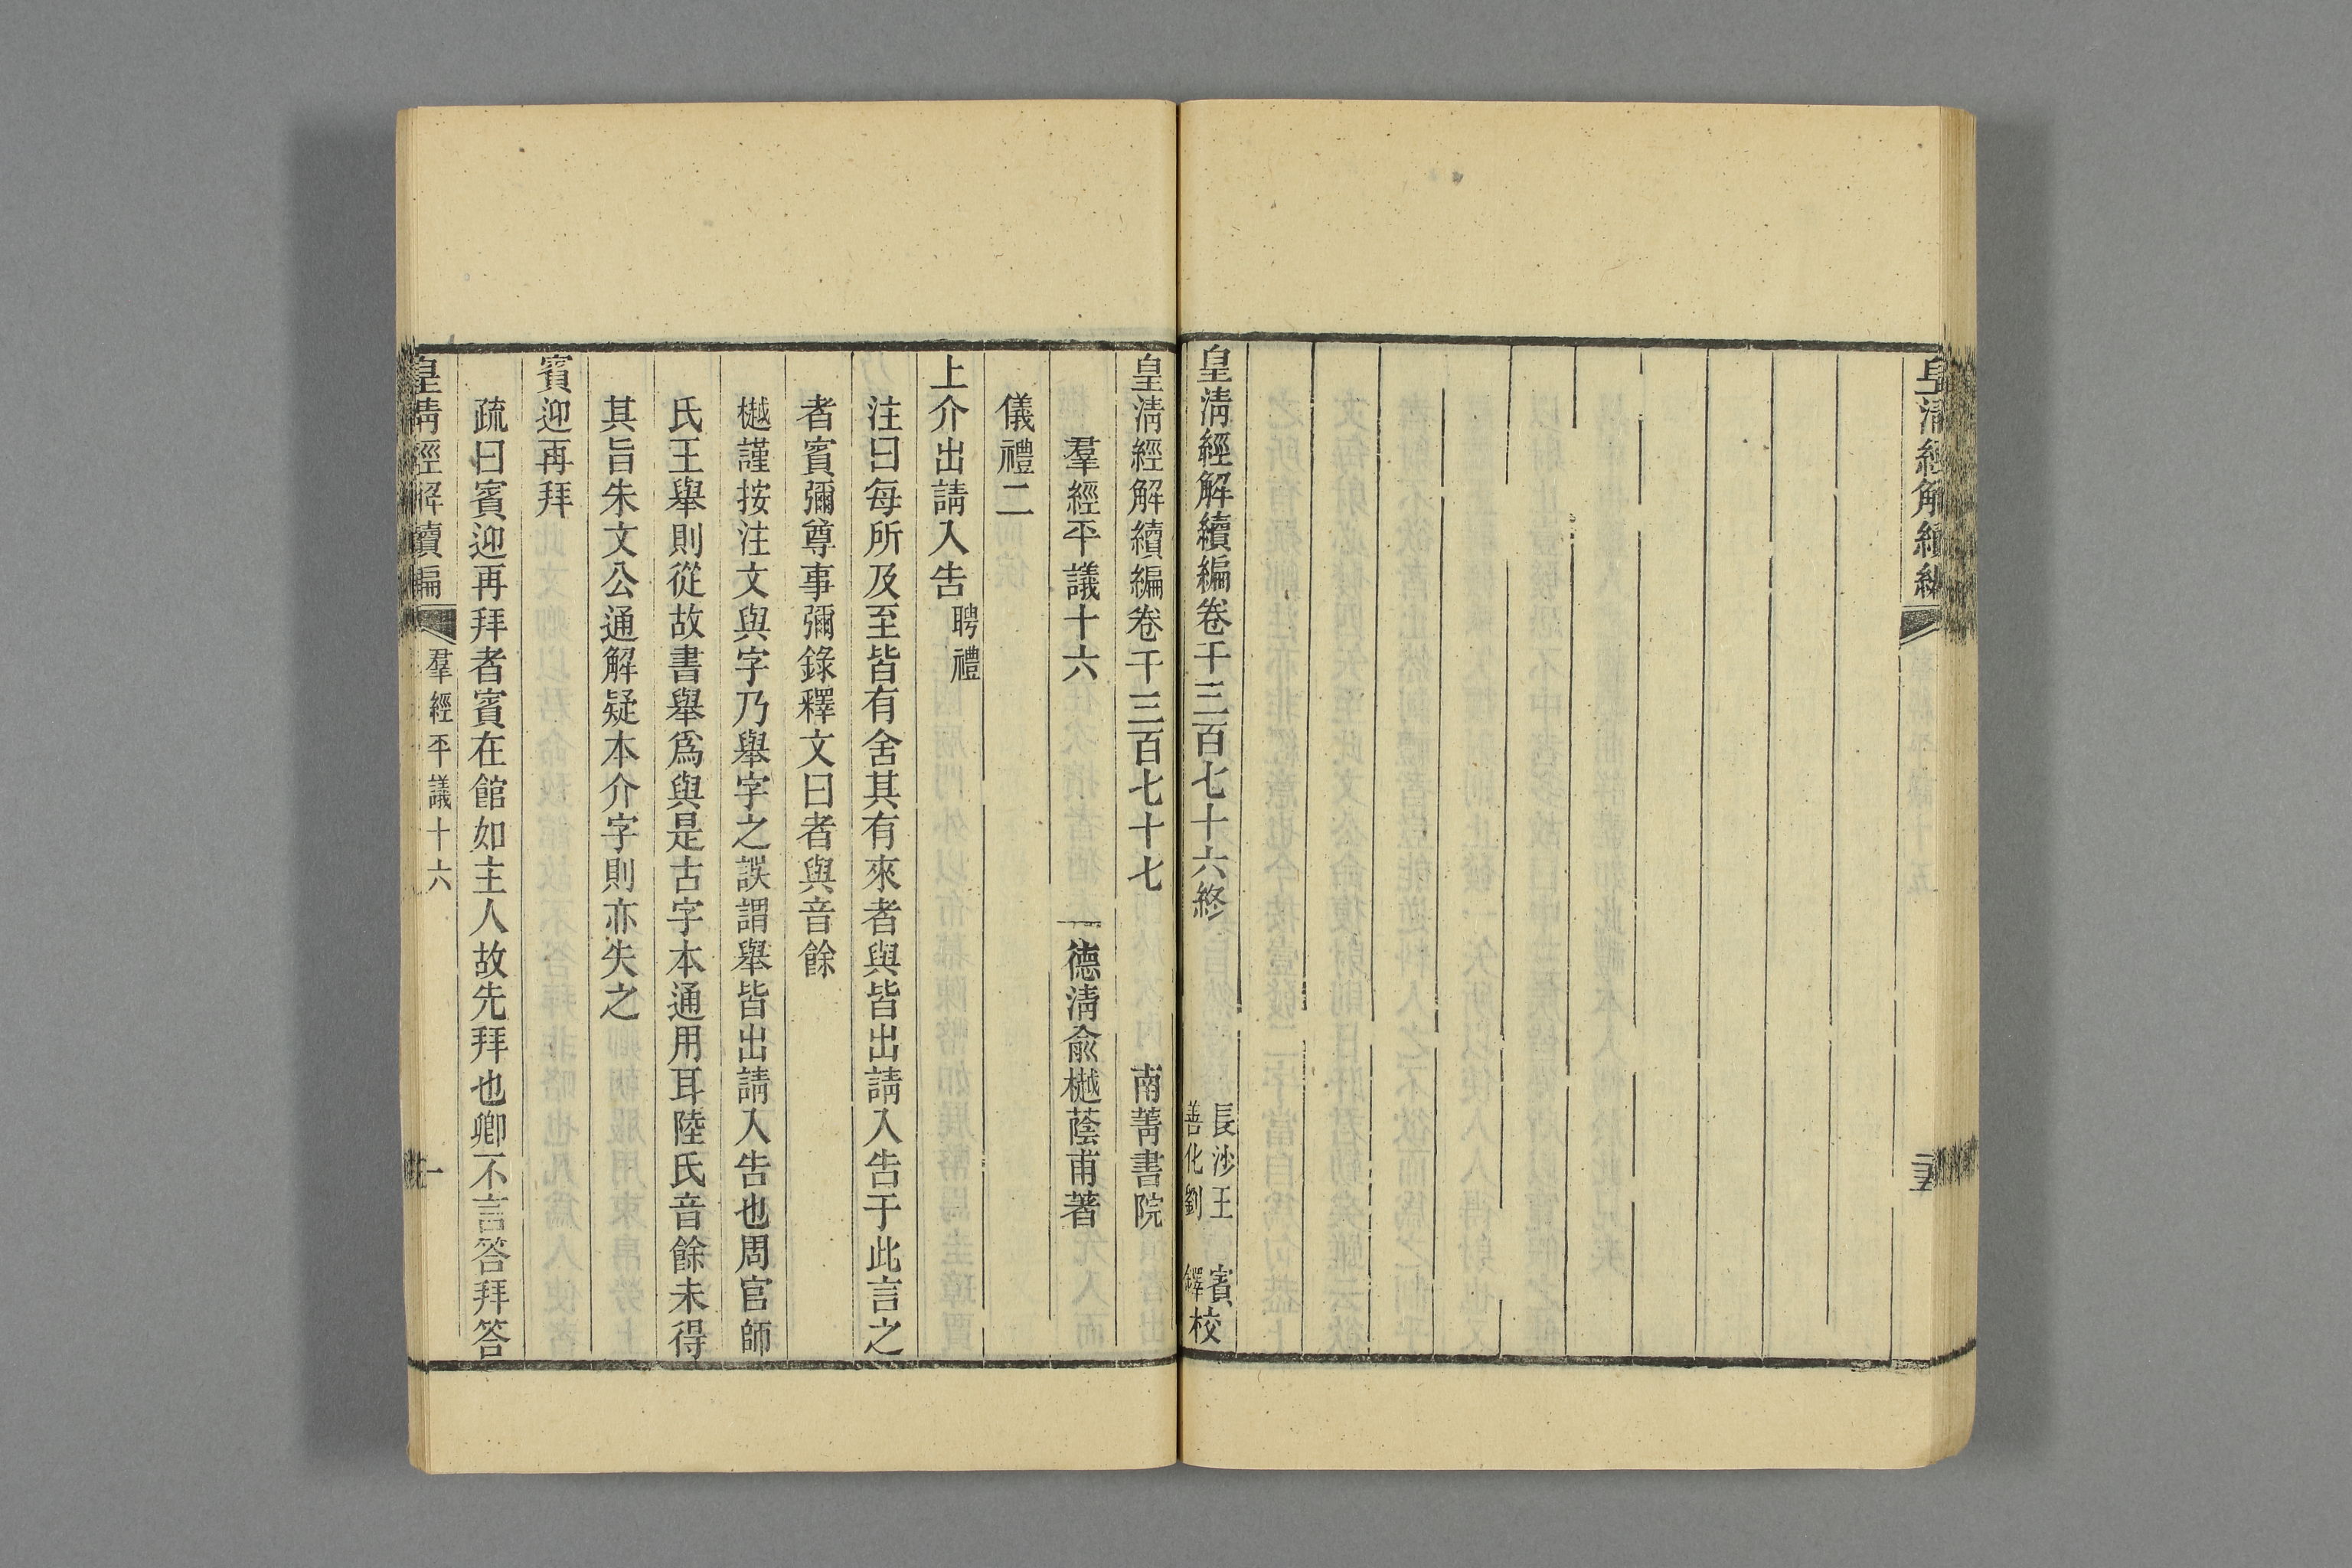 皇清經解續編
皇清經解續編卷千三百七十六終
長沙王 賓
善化劉 鐸
校
皇清經解續編卷千三百七十七 南菁書院
羣經平議十六 德清俞樾蔭甫著
儀禮二
上介出請入告聘禮
注曰每所及至皆有舍其有來者與皆出請入告于此言之
者賓彌尊事彌錄釋文曰者與音餘
樾謹按注文與字乃舉字之誤謂舉皆出請入告也周官師
氏王舉則從故書舉爲與是古字本通用耳陸氏音餘未得
其旨朱文公通解疑本介字則亦失之
賓迎再拜
疏曰賓迎再拜者賓在館如主人故先拜也卿不言答拜答
皇清經解續編 羣經平議十六 一